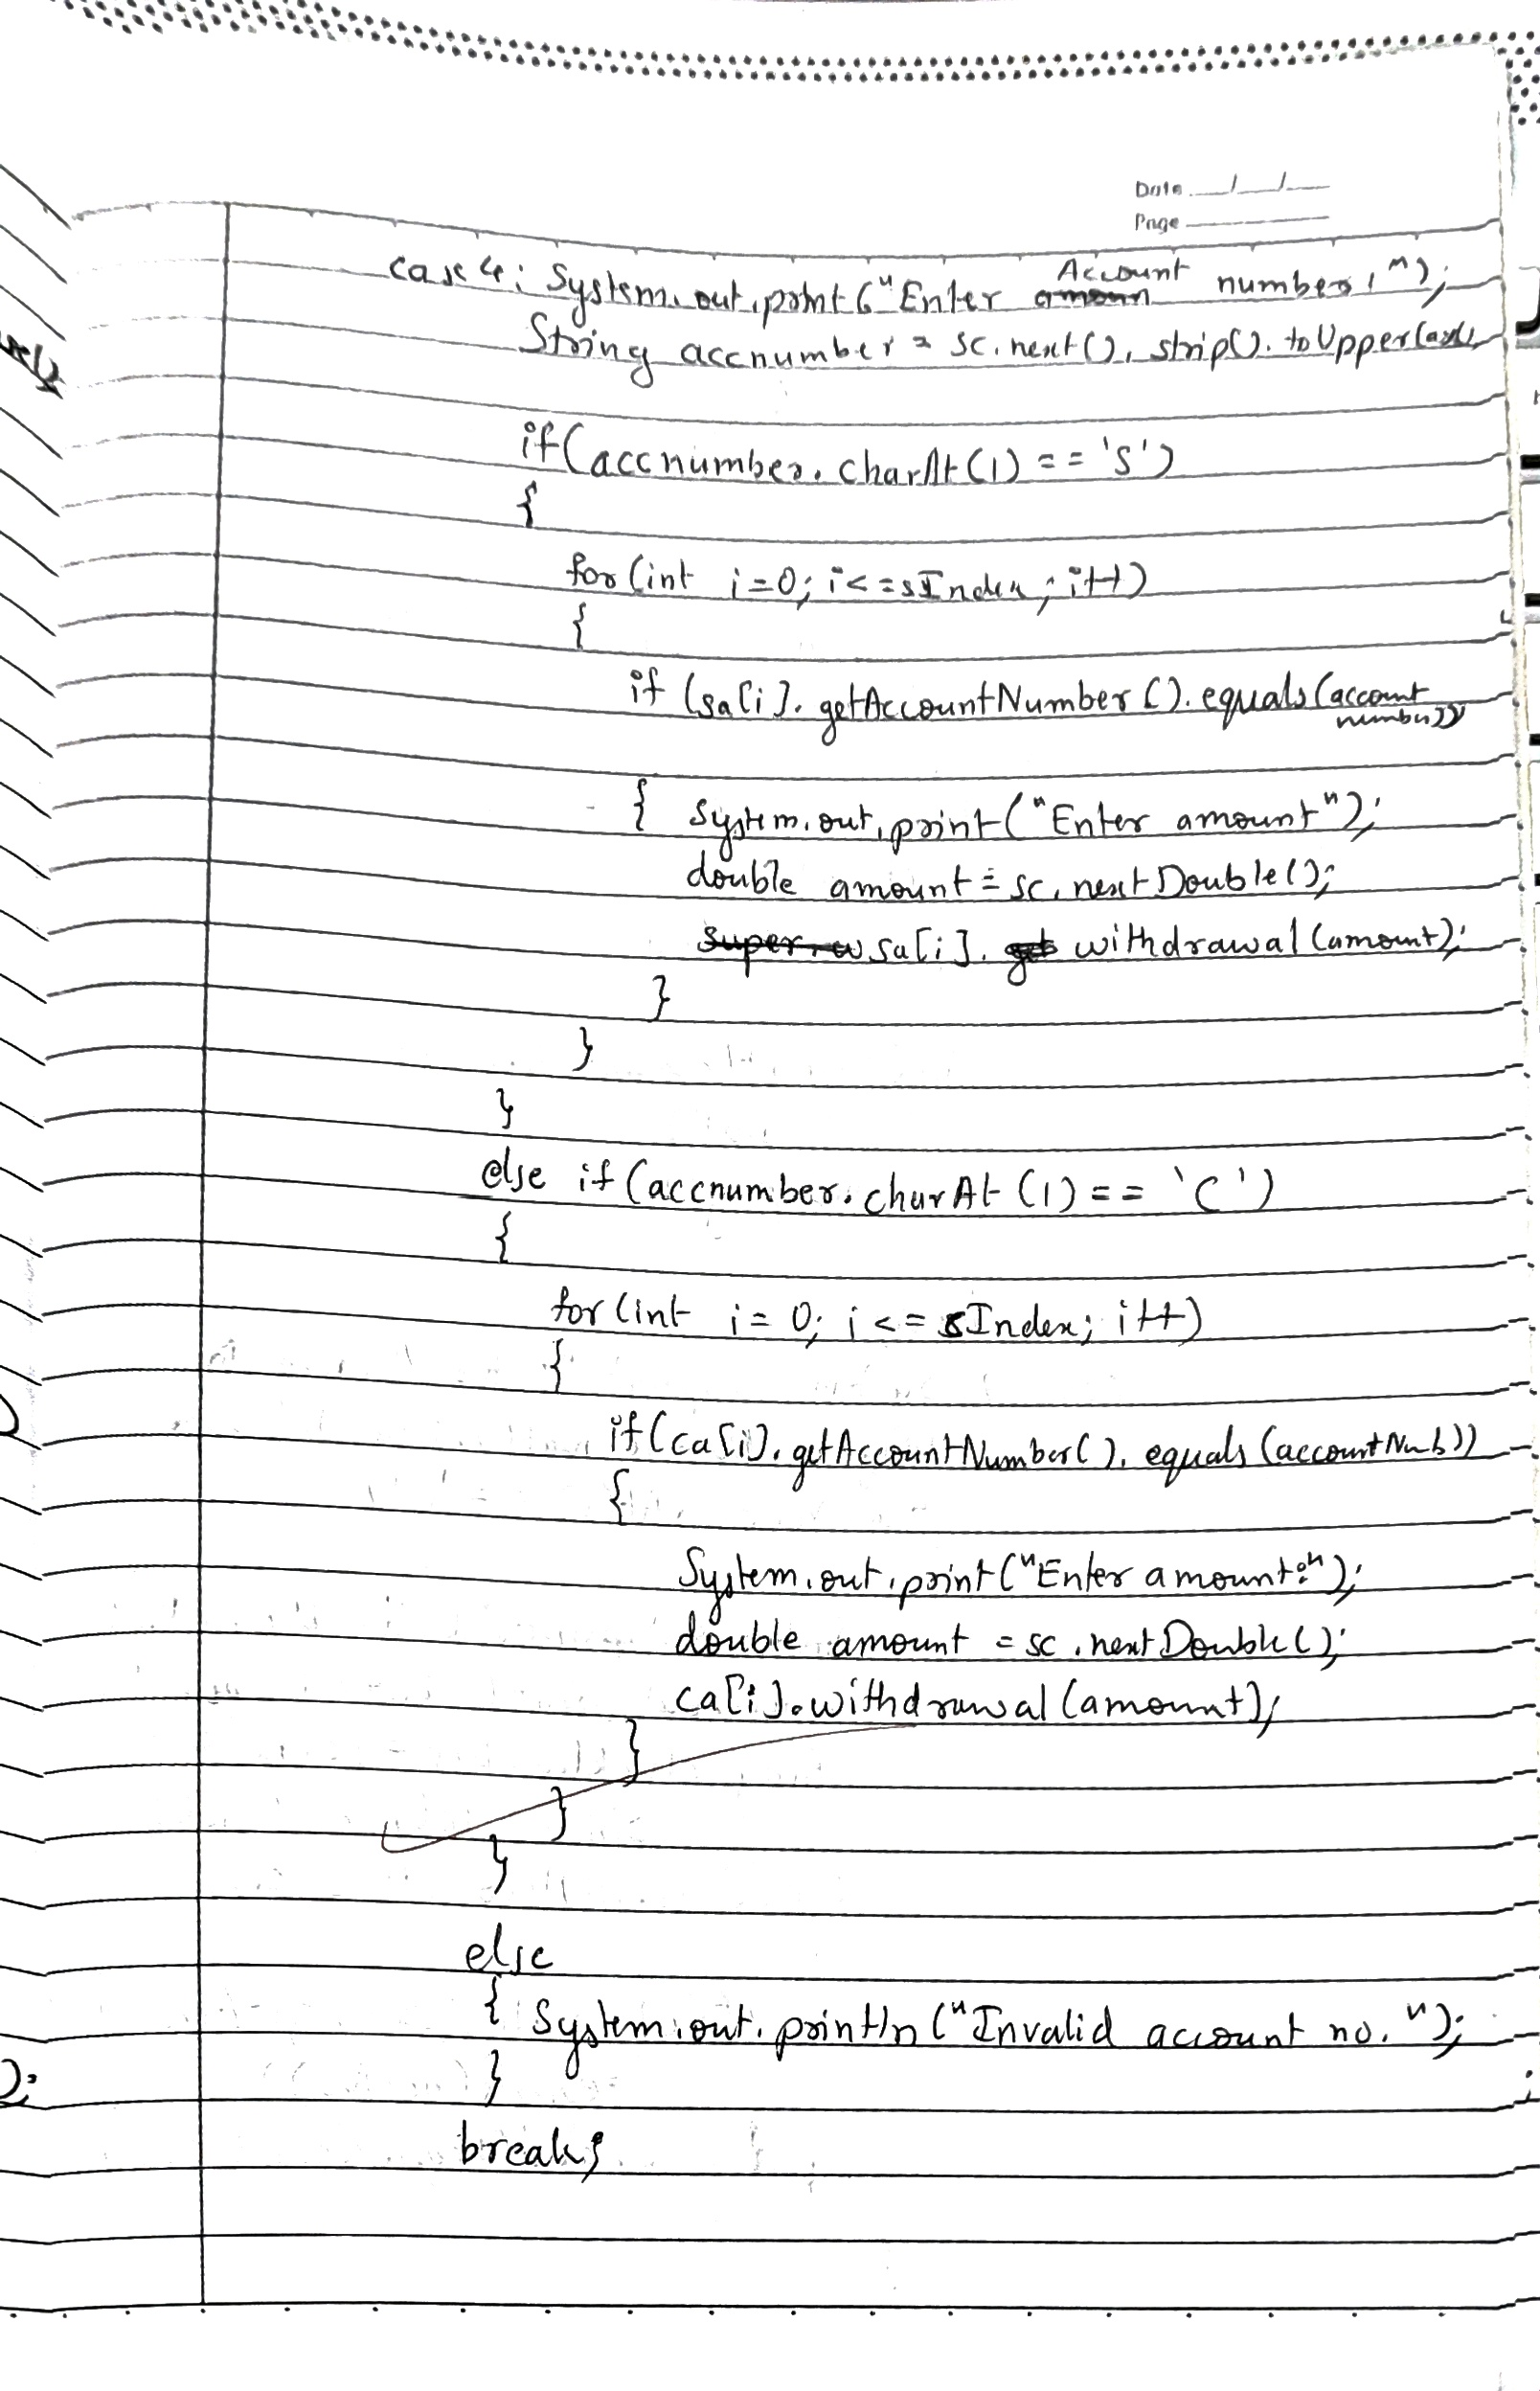 Date / /
Page
case 4: System.out.print("Enter Account number:");
String accnumber = sc.next().strip().toUpperCase();
if(accnumber.charAt(1) == 'S')
{
for(int i=0; i<=sIndex; i++)
{
if (sa[i].getAccountNumber().equals(account
number))
{ System.out.print("Enter amount");
double amount = sc.nextDouble();
sa[i]. withdrawal(amount);
}
}
}
else if (accnumber.charAt(1) == 'C')
{
for(int i = 0; i <= sIndex; i++)
{
if(ca[i].getAccountNumber().equals(accountNumb))
{
System.out.print("Enter amount:");
double amount = sc.nextDouble();
ca[i].withdrawal(amount);
}
}
}
else
{ System.out.println("Invalid account no.");
}
break;